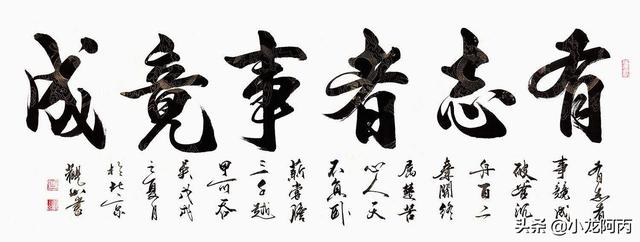 有志者事竟成
有志者
事竞成
破釜沉
舟百二
秦關終
属楚苦
心人天
不負卧
薪嘗膽
三千越
甲可吞
吴戊戌
之夏月
於北京
觀山書
头条 @小龙阿丙